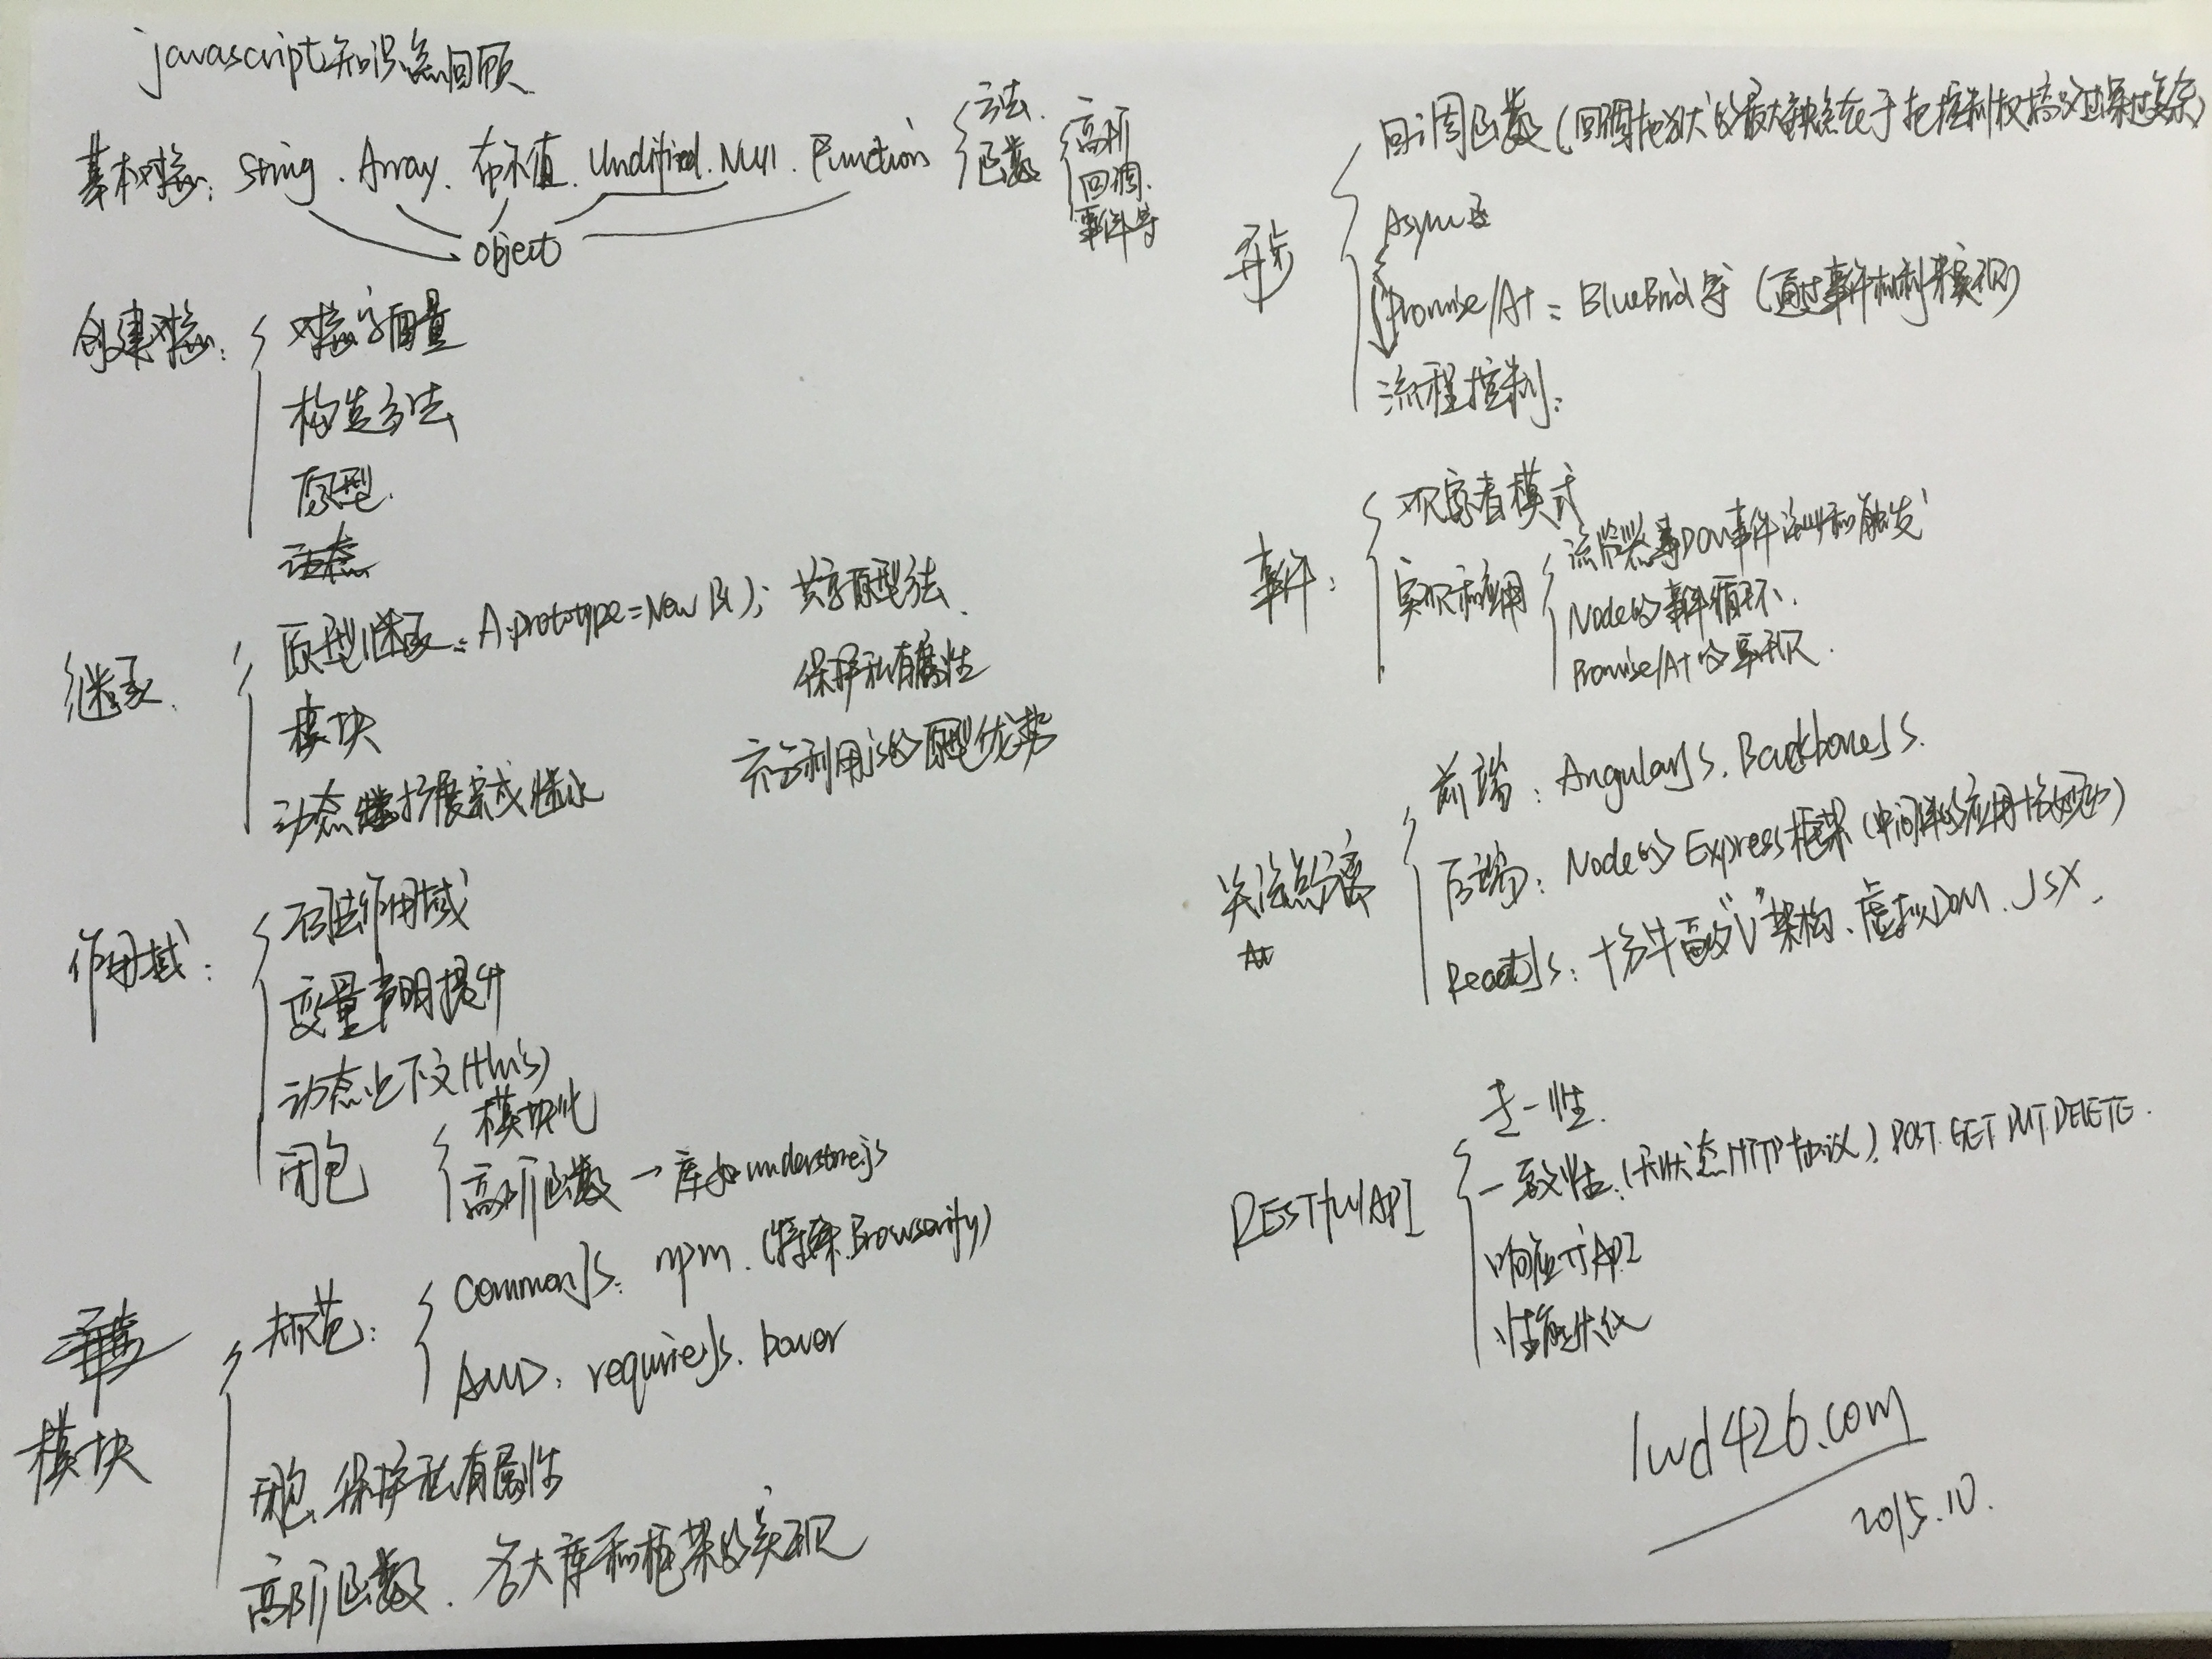 javascript知识点回顾
基本对象: String. Array. 布尔值. Undifined. Null. Function
方法.
函数
高阶
回调.
事件等
object
创建对象:
对象字面量
构造方法
原型.
动态
继承.
原型继承: A.prototype=New B(); 共享原型方法.
保护私有属性
模块
充分利用js的原型优势
动态扩展完成继承
作用域:
词法作用域
变量声明提升
动态上下文(this)
闭包
模块化
高阶函数 → 库如underscorejs
模块
规范:
CommonJS: npm. (特殊.Browserify)
AMD: requireJs. bower
闭包. 保护私有属性
高阶函数. 各大库和框架的实现
异步
回调函数(回调地狱的最大缺点在于把控制权搞的过深过复杂)
Async库
Promise/A+ = BlueBrid等 (通过事件机制来实现)
流程控制:
事件:
观察者模式
实现和应用
浏览器等DOM事件注册和触发
Node的事件循环.
Promise/A+的实现.
关注点分离
前端: AngularJS. BackboneJS.
后端: Node的Express框架 (中间件的应用十分如玩)
ReactJs: 十分牛逼的"V"架构、虚拟DOM. JSX.
RESTfulAPI
一性.
一致性: (无状态HTTP协议). POST. GET. PUT. DELETE.
响应式API
性能优化
lwd426.com
2015.10.